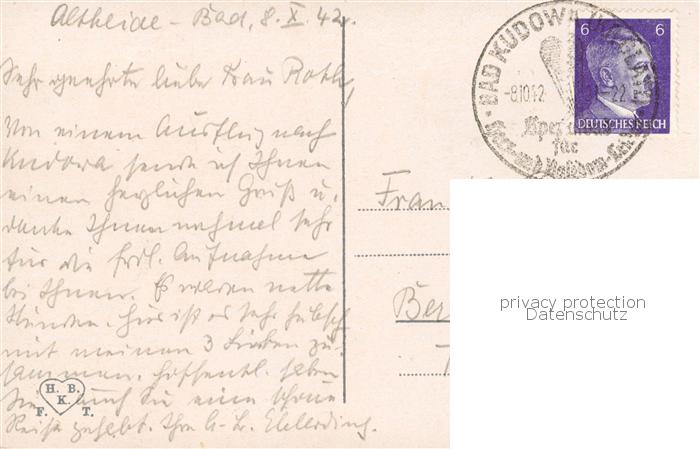 Altheide-Bad, 8. X. 42.
Sehr geehrte liebe Frau Roth,
Von einem Ausflug nach
Kudowa sende ich Ihnen
einen herzlichen Gruß u.
danke Ihnen nochmal sehr
für die frdl. Aufnahme
bei Ihnen. Es waren nette
Stunden. Hier ist es sehr hübsch
mit meinen 3 zu-
sammen. Hoffentl. haben
Sie auch Sie eine schöne
Reise gehabt. Ihre
H. B.
K.
F. T.
BAD KUDOWA
-8.10.42 -22
für
Herz- und
6 6
DEUTSCHES REICH
Frau
Ber
privacy protection
Datenschutz